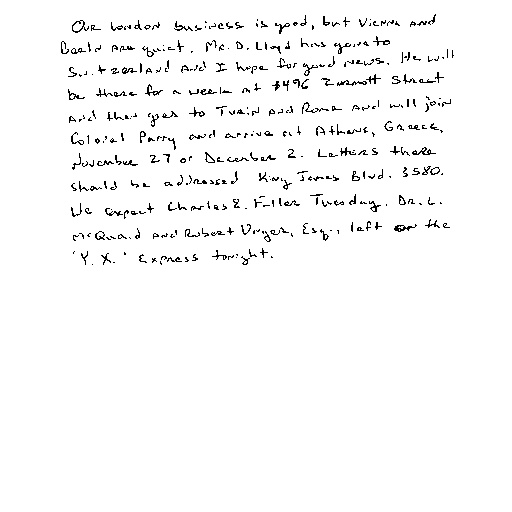 Our London business is good, but Vienna and
Berlin are quiet. Mr. D. Lloyd has gone to
Switzerland and I hope for good news. He will
be there for a week at 1496 Zermott Street
and then goes to Turin and Rome and will join
Colonel Parry and arrive at Athens, Greece,
November 27 or December 2. Letters there
should be addressed King James Blvd. 3580.
We expect Charles E. Fuller Tuesday. Dr. L.
McQuaid and Robert Unger, Esq., left on the
"Y. X." Express tonight.